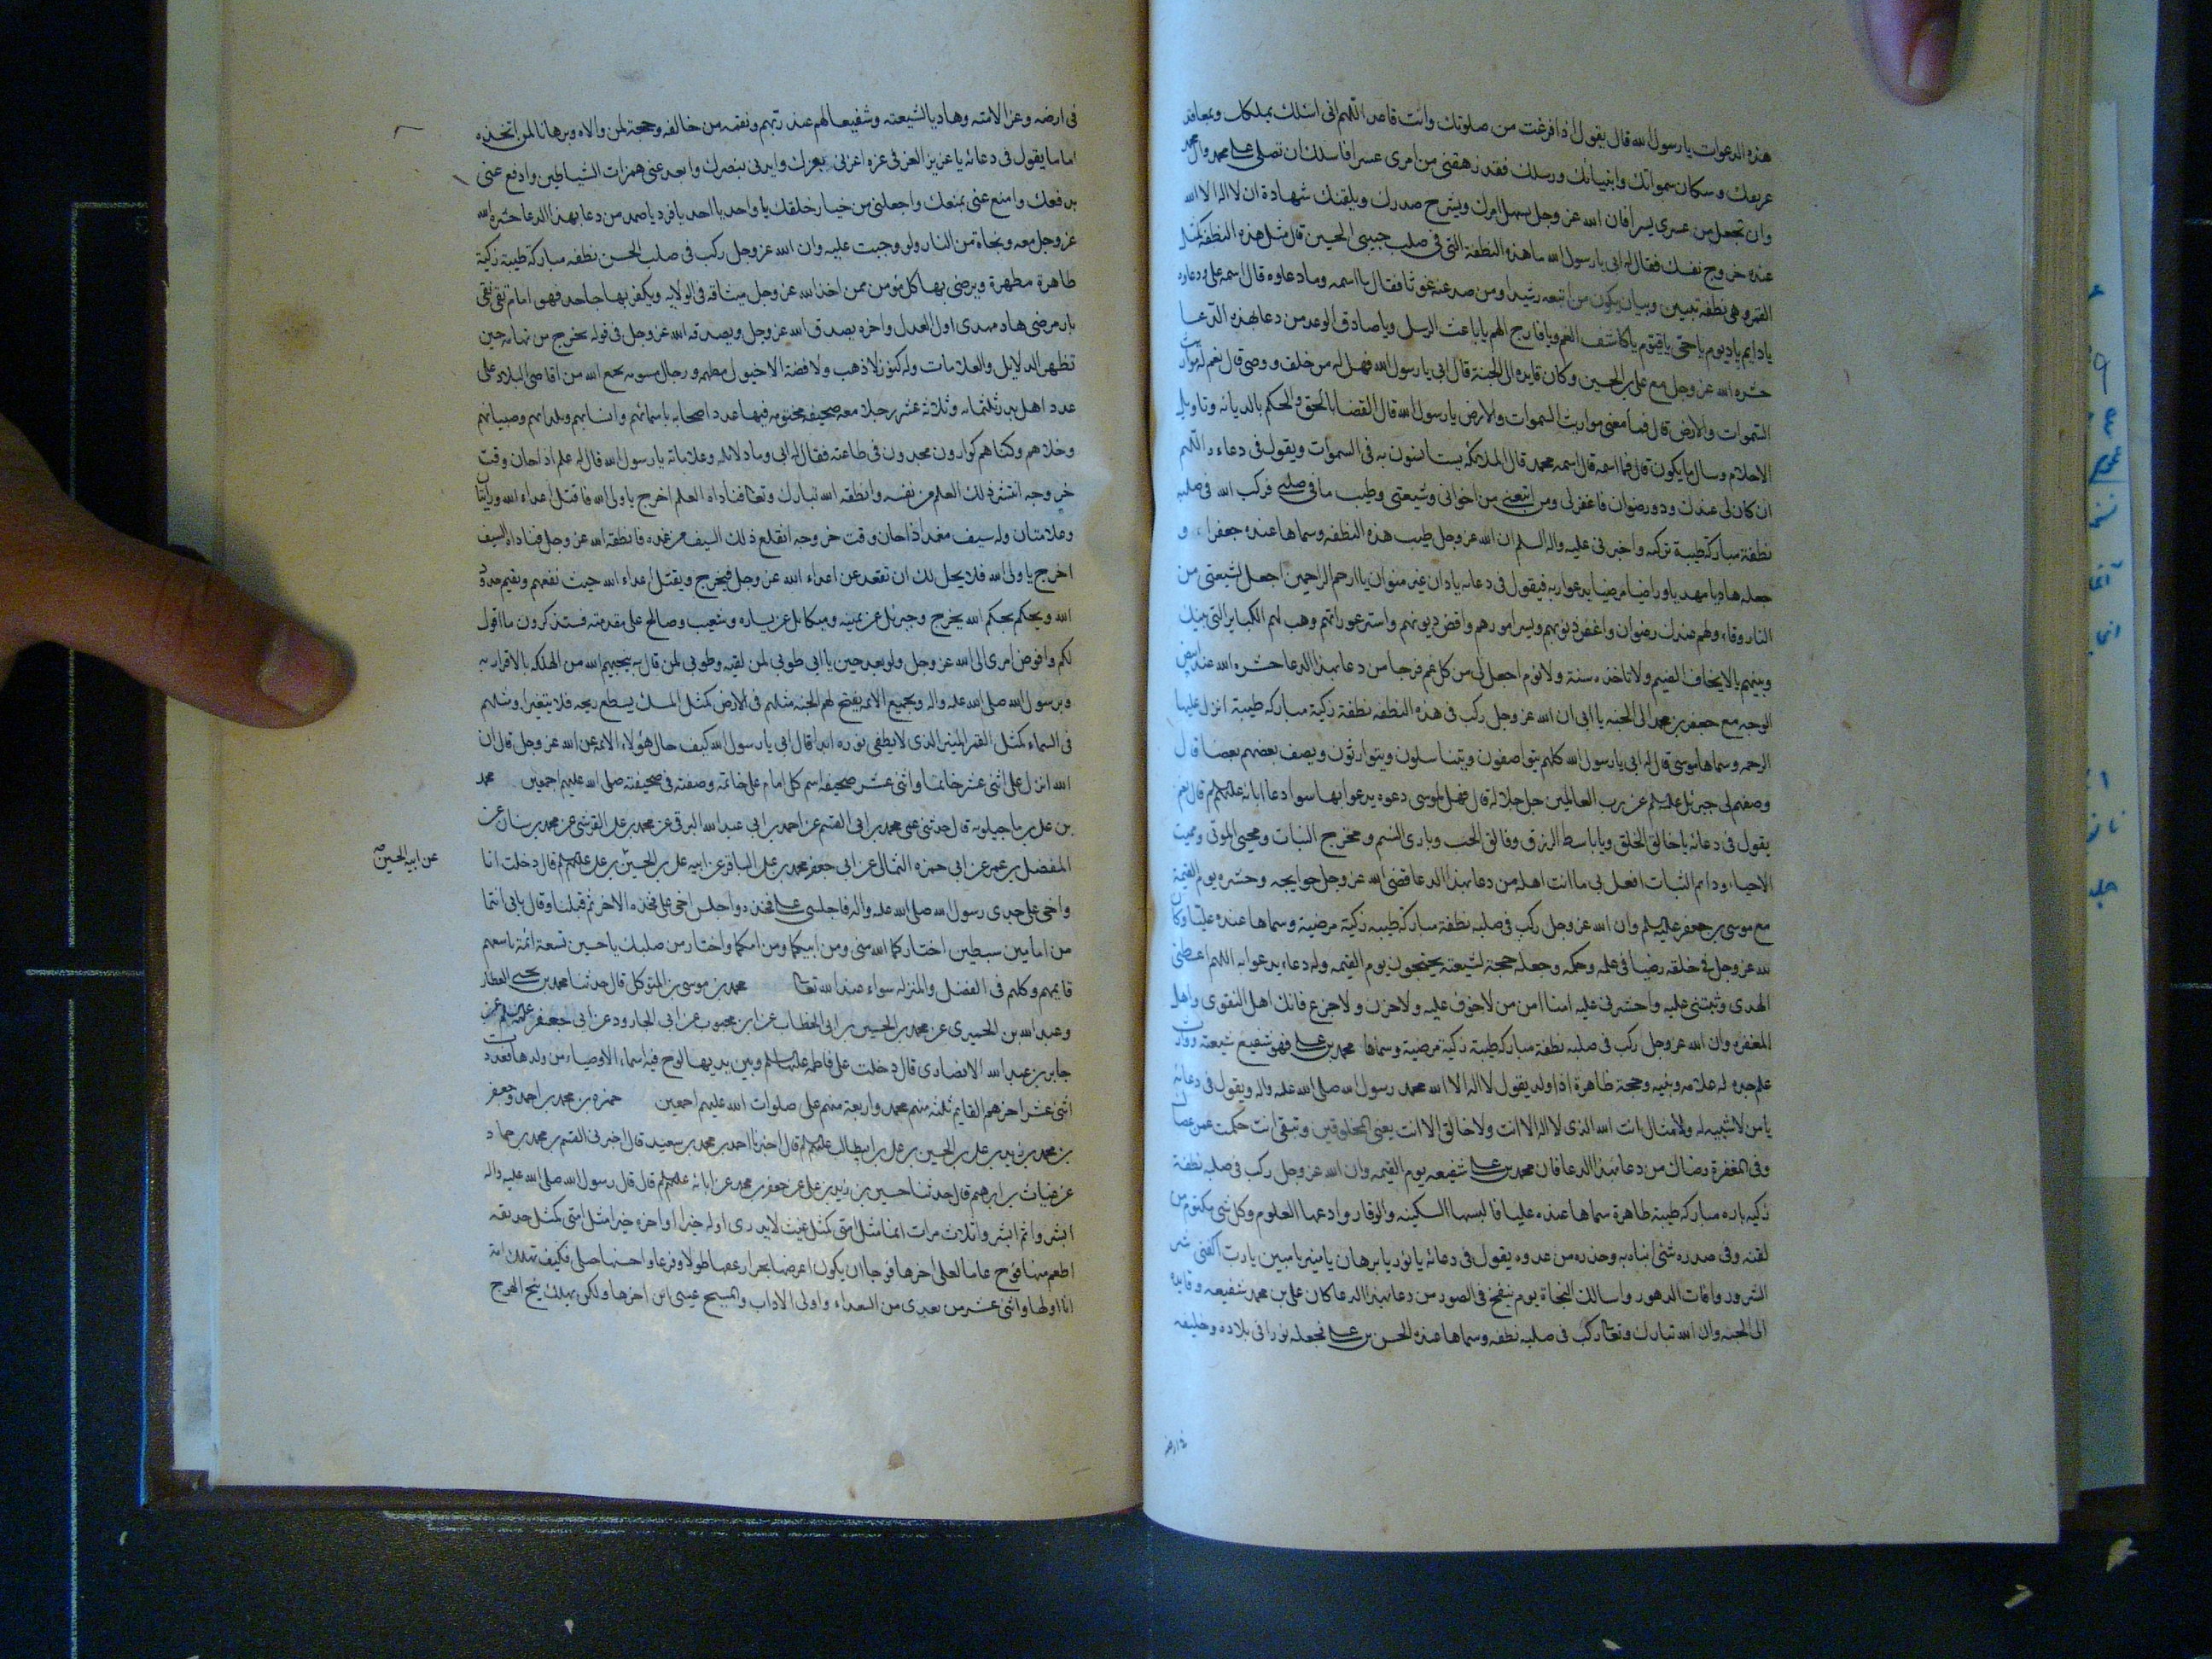 هذه الدعوات يا رسول الله قال يقول اذا فرغت من صلوتك وانت قاعد اللهم انى اسئلك بملكك وبمعاقد
عرشك وسكان سمواتك وانبيائك ورسلك فقد رهقنى من امرى عسرا فاسئلك ان تصلى على محمد وال محمد
وان تجعل من عسرى يسرا فان الله عز وجل يسهل امرك ويشرح صدرك ويلقنك شهادة ان لا اله الا الله
عند خروج نفسك فقال له ابى يا رسول الله ما هذه النطفة التى فى صلب حبيبى الحسين قال مثل هذه النطفة كمثل
القمر وهى نطفة تبيين وبيان يكون من اتبعه رشيدا ومن صد عنه غوثا فقال ما اسمه وما دعاوه قال اسمه على ودعاوه
يا دايم يا ديوم يا حى يا قيوم يا كاشف الغم ويا فارج الهم يا باعث الرسل ويا صادق الوعد من دعا بهذه الدعا
حشره الله عز وجل مع على بن الحسين وكان قايده الى الجنة قال ابى يا رسول الله فهل له من خلف ووصى قال نعم له مواريث
السموات والارض قال فما معنى مواريث السموات والارض يا رسول الله قال القضا بالحق والحكم بالديانه وتاويل
الاحلام وبيان ما يكون قال فما اسمه قال اسمه محمد قال الملائكه يستانسون به فى السموات ويقول فى دعاءه اللهم
ان كان لى عندك ود ورضوان فاغفر لى ومن اتبعنى من اخوانى وشيعتى وطيب ما فى صلبى فركب الله فى صلبه
نطفة مباركة طيبة زكيه واخبرنى عليه واله السلم ان الله عز وجل طيب هذه النطفه وسماها عنده جعفرا و
جعله هاديا مهديا وراضيا مرضيا يدعوا ربه فيقول فى دعائه يا دان غير متوان يا ارحم الراحمين اجعل لشيعتى من
النار وقاء ولهم عندك رضوان واغفر ذنوبهم ويسر امورهم واقض ديونهم واستر عوراتهم وهب لهم الكباير التى بينك
وبينهم يا من لا يخاف الضيم ولا تاخذه سنة ولا نوم اجعل لى من كل غم فرجا من دعا بهذا الدعا حشره الله عنده ابيض
الوجه مع جعفر بن محمد الى الجنه يا ابى ان الله عز وجل ركب فى هذه النطفه نطفة زكية مباركه طيبة انزل عليها
الرحمه وسماها موسى قال له ابى يا رسول الله كلهم يتواصفون ويتناسلون ويتوارثون ويصف بعضهم بعضا قال
وصفهم لى جبرئل عليه السلم عن رب العالمين جل جلاله قال فهل لموسى دعوه يدعوا بها سوا دعا ابائه عليهم السلم قال نعم
يقول فى دعائه يا خالق الخلق ويا باسط الرزق وفالق الحب وبارى النسم ومخرج النبات ومحيى الموتى ومميت
الاحياء ودايم الثبات افعل بى ما انت اهله من دعا بهذا الدعا قضى الله عز وجل حوايجه وحشره يوم القيمة
مع موسى بن جعفر عليه السلم وان الله عز وجل ركب فى صلبه نطفة مباركة طيبه زكية مرضية وسماها عنده عليا وكان
لله عز وجل فى خلقه رضيا فى علمه وحكمه وجعله حجة لشيعته يحتجون يوم القيمه وله دعاء يدعوا به اللهم اعطنى
الهدى وثبتنى عليه واحشرنى عليه امنا امن من لا خوف عليه ولا حزن ولا جزع فانك اهل التقوى واهل
المغفره وان الله عز وجل ركب فى صلبه نطفة مباركه طيبة زكية مرضية وسماها محمد بن على فهو شفيع شيعته ووارث
علم جده له علامه وبينه وحجة ظاهرة اذا ولد يقول لا اله الا الله محمد رسول الله صلى الله عليه واله ويقول فى دعائه
يا من لا شبيه له ولا مثال انت الله الذى لا اله الا انت ولا خالق الا انت يفنى المخلوقين وتبقى انت حلمت عمن عصاك
وفى المغفرة رضاك من دعا بهذا الدعا فان محمد بن على شفيعه يوم القيمه وان الله عز وجل ركب فى صلبه نطفة
زكيه باره مباركه طيبة طاهرة سماها عنده عليا فالبسها السكينه والوقار وادعها العلوم وكل شى مكتوم من
لقيه وفى صدره شئ انباه به وحذره من عدوه يقول فى دعائه يا نور يا برهان يا منير يا مبين يا رب اكفنى شر
الشرور وافات الدهور واسالك النجاة يوم ينفخ فى الصور من دعا بهذا الدعا كان على بن محمد شفيعه وقايده
الى الجنه وان الله تبارك وتعالى ركب فى صلبه نطفه وسماها عنده الحسن بن على فجعله نورا فى بلاده وخليفه
فى ارضه
فى ارضه وعزا لامته وهاديا لشيعته وشفيعا لهم عند ربهم ونقمه من خالفه وحجة لمن والاه وبرهانا لمن اتخذه
اماما يقول فى دعائه يا عزيز العز فى عزه اعزنى بعزك وايدنى بنصرك وابعد عنى همزات الشياطين وادفع عنى
بدفعك وامنع عنى بمنعك واجعلنى من خيار خلقك يا واحد يا احد يا فرد يا صمد من دعا بهذا الدعا حشره الله
عز وجل معه ونجاه من النار ولو وجبت عليه وان الله عز وجل ركب فى صلب الحسن نطفه مباركة طيبة زكية
طاهرة مطهرة ويرضى بها كل مؤمن ممن اخذ الله عز وجل ميثاقه فى الولايه ويكفر بها جاحد فهو امام تقى نقى
بار مرضى هاد مهدى اول العدل واخره يصدق الله عز وجل ويصدقه الله عز وجل فى قوله يخرج من تهامه حين
تظهر الدلايل والعلامات وله كنوز لا ذهب ولا فضة الا خيول مطهمه ورجال مسومه يجمع الله من اقاصى البلاد على
عدد اهل بدر ثلثمائه وثلاثة عشر رجلا معه صحيفه مختومه فيها عدد اصحابه باسمائهم وانسابهم وبلدانهم وصبيانهم
وحلاهم وكناهم كرارون مجدون فى طاعته فقال له ابى وما دلائله وعلاماته يا رسول الله قال له علم اذا حان وقت
خروجه انتشر ذلك العلم من نفسه وانطقه الله تبارك وتعالى فناداه العلم اخرج يا ولى الله فاقتل اعداء الله ورايتان
وعلامتان وله سيف مغمد اذا حان وقت خروجه اقتلع ذلك السيف من غمده فانطقه الله عز وجل فناداه السيف
اخرج يا ولى الله فلا يحل لك ان تقعد عن اعداء الله عز وجل فيخرج ويقتل اعداء الله حيث ثقفهم ويقيم حدود
الله ويحكم بحكم الله يخرج وجبرئل عن يمينه وميكائل عن يساره وشعيب وصالح على مقدمته فستذكرون ما اقول
لكم وافوض امرى الى الله عز وجل ولو بعد حين يا ابى طوبى لمن لقيه وطوبى لمن قال به ينجيهم الله من الهلكه بالاقرار به
وبرسول الله صلى الله عليه واله وبجميع الائمه يفتح لهم الجنه مثلهم فى الارض كمثل المسك يسطع ريحه فلا يتغير ابدا ومثلهم
فى السماء كمثل القمر المنير الذى لا يطفى نوره ابدا قال ابى يا رسول الله كيف حال هؤلاء الائمه عن الله عز وجل قال ان
الله انزل على اثنى عشر خاتما واثنى عشر صحيفه اسم كل امام على خاتمه وصفته فى صحيفته صلى الله عليهم اجمعين محمد
بن على بن ماجيلويه قال حدثنى عمى محمد بن ابى القسم عن احمد بن ابى عبد الله البرقى عن محمد بن على القرشى عن محمد بن سنان عن
المفضل بن عمر عن ابى حمزه الثمالى عن ابى جعفر محمد بن على الباقر عن ابيه على بن الحسين بن على عليهم السلم قال دخلت انا
عن ابيه الحسين
واخى على جدى رسول الله صلى الله عليه واله فاجلسنى على فخذه واجلس اخى على فخذه الاخر ثم قبلنا وقال بابى انتما
من امامين سبطين اختاركما الله منى ومن ابيكما ومن امكما واختار من صلبك يا حسين تسعة ائمة تاسعهم
قايمهم وكلهم فى الفضل والمنزله سواء عند الله تعالى محمد بن موسى بن المتوكل قال حدثنا محمد بن يحيى العطار
وعبد الله بن الحميرى عن محمد بن الحسين بن ابى الخطاب عن ابن محبوب عن ابى الجارود عن ابى جعفر عليه السلم عن
جابر بن عبد الله الانصارى قال دخلت على فاطمه عليها السلم وبين يديها لوح فيه اسماء الاوصياء من ولدها فعددت
اثنى عشر اخرهم القايم ثلثه منهم محمد واربعة منهم على صلوات الله عليهم اجمعين حمزه بن محمد بن احمد بن جعفر
بن محمد بن زيد بن على بن الحسين بن على بن ابيطالب عليهم السلم قال اخبرنا احمد بن محمد بن سعيد قال اخبرنى القسم بن محمد بن حماد
عن غياث بن ابرهيم قال حدثنا حسين بن زيد بن على عن جعفر بن محمد عن ابائه عليهم السلم قال قال رسول الله صلى الله عليه واله
ابشروا ثم ابشروا ثلاث مرات انما مثل امتى كمثل غيث لا يدرى اوله خير ام اخره خير انما مثل امتى كمثل حديقه
اطعم منها فوج عاما لعل اخرها فوجا ان يكون اعرضها بحرا وعمقها طولا وفرعا واحسنها حبا فكيف تهلك امة
انا اولها واثنى عشر من بعدى من السعداء واولى الالباب والمسيح عيسى ابن اخرها ولكن يهلك نتج الهرج